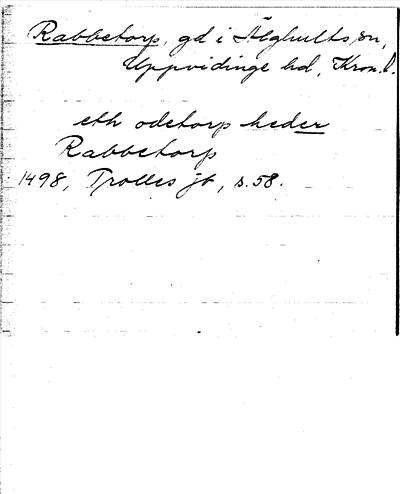 Rabbetorp, gd i Älghults sn,
Uppvidinge hd, Kron.l.
eth ödetorp heder
Rabbetorp
1498, Trolles jb, s.58.